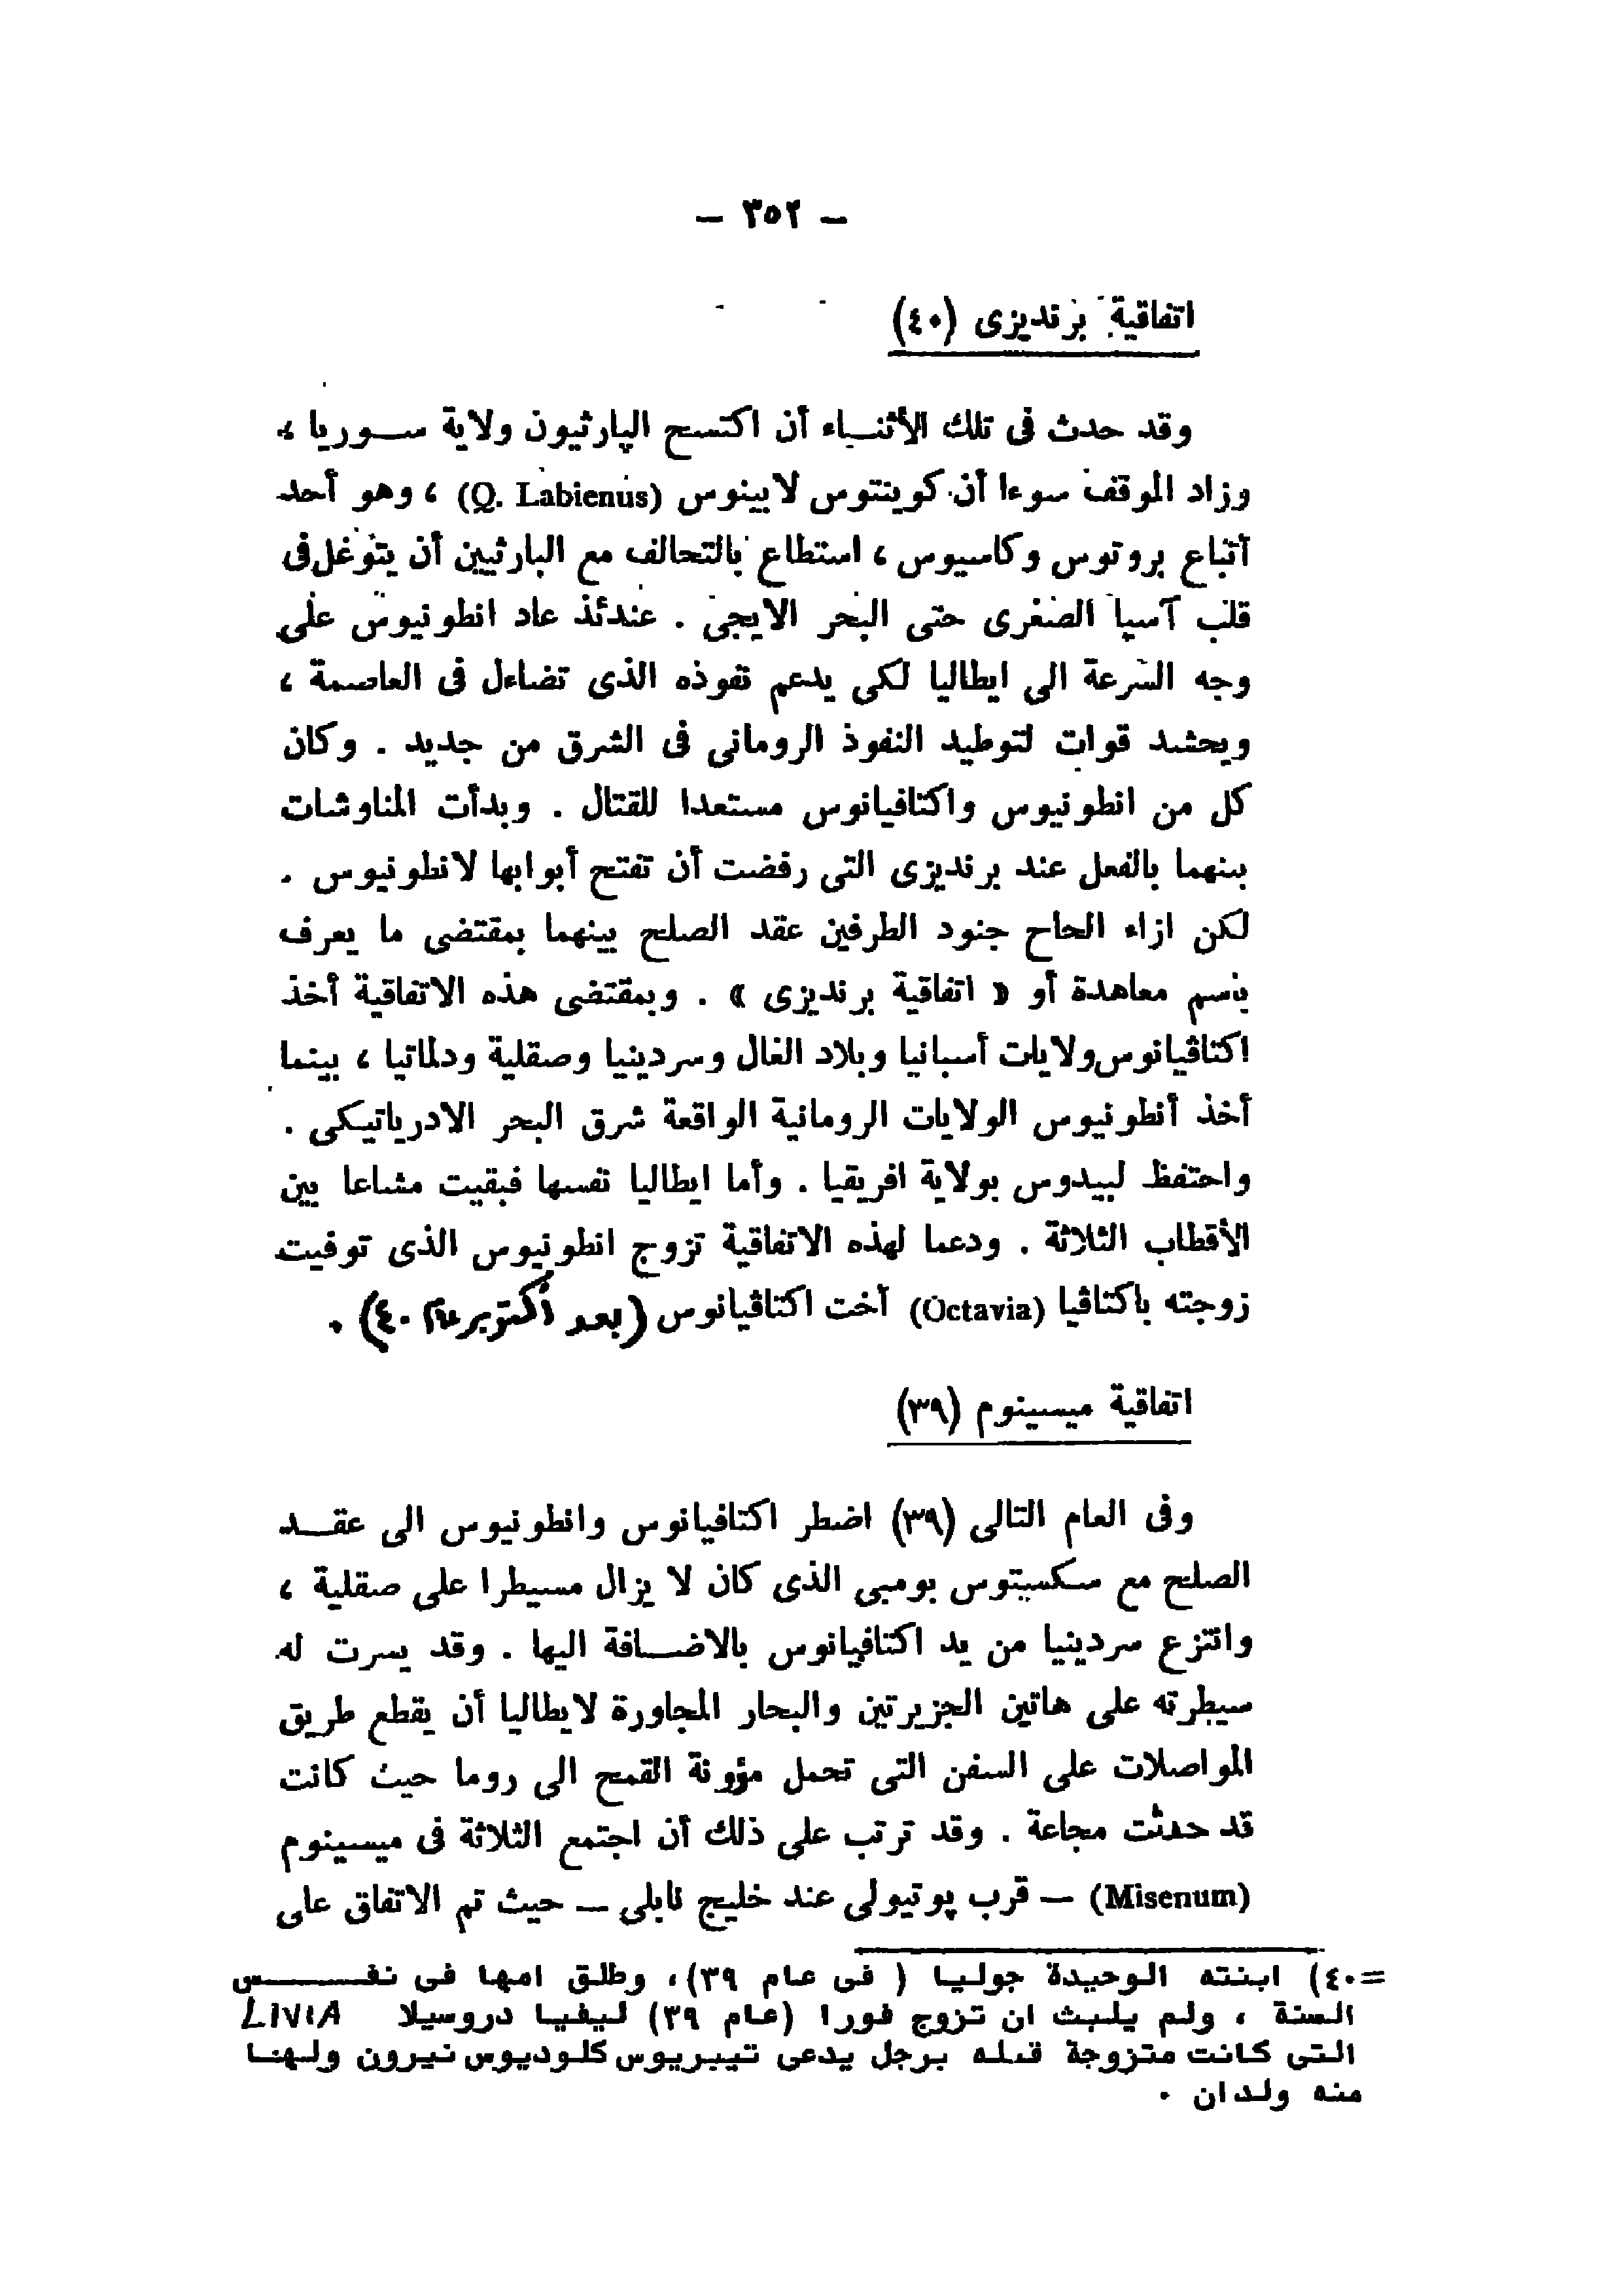 — ٣٥٢ —
اتفاقية برنديزى (٤٠)
وقد حدث فى تلك الأثنــاء أن اكتسح الپارثيون ولاية ســوريا ،
وزاد الموقف سوءا أن كوينتوس لابينوس (Q. Labienus) ، وهو أحد
أتباع بروتوس وكاسيوس ، استطاع بالتحالف مع البارثيين أن يتوغل فى
قلب آسيا الصغرى حتى البحر الايجى . عندئذ عاد انطونيوس على
وجه السرعة الى ايطاليا لكى يدعم نفوذه الذى تضاءل فى العاصمة ،
ويحشد قوات لتوطيد النفوذ الرومانى فى الشرق من جديد . وكان
كل من انطونيوس واكتافيانوس مستعدا للقتال . وبدأت المناوشات
بينهما بالفعل عند برنديزى التى رفضت أن تفتح أبوابها لانطونيوس .
لكن ازاء الحاح جنود الطرفين عقد الصلح بينهما بمقتضى ما يعرف
باسم معاهدة أو « اتفاقية برنديزى » . وبمقتضى هذه الاتفاقية أخذ
اكتاڤيانوس ولايات أسبانيا وبلاد الغال وسردينيا وصقلية ودلماتيا ، بينما
أخذ أنطونيوس الولايات الرومانية الواقعة شرق البحر الادرياتيكى .
واحتفظ لبيدوس بولاية افريقيا . وأما ايطاليا نفسها فبقيت مشاعا بين
الأقطاب الثلاثة . ودعما لهذه الاتفاقية تزوج انطونيوس الذى توفيت
زوجته باكتاڤيا (Octavia) أخت اكتاڤيانوس (بعد أكتوبر عام ٤٠) .
اتفاقية ميسينوم (٣٩)
وفى العام التالى (٣٩) اضطر اكتافيانوس وانطونيوس الى عقــد
الصلح مع سكسيتوس بومبى الذى كان لا يزال مسيطرا على صقلية ،
وانتزع سردينيا من يد اكتافيانوس بالاضــافة اليها . وقد يسرت له
سيطرته على هاتين الجزيرتين والبحار المجاورة لايطاليا أن يقطع طريق
المواصلات على السفن التى تحمل مؤونة القمح الى روما حيث كانت
قد حدثت مجاعة . وقد ترتب على ذلك أن اجتمع الثلاثة فى ميسينوم
(Misenum) — قرب پوتيولى عند خليج نابلى — حيث تم الاتفاق على
=٤٠) ابنته الوحيدة جوليا ( فى عام ٣٩)، وطلق امها فى نفــــس
السنة ، ولم يلبث ان تزوج فورا (عام ٣٩) ليفيا دروسيلا LIVIA
التى كانت متزوجة قبله برجل يدعى تيبريوس كلوديوس نيرون ولهنا
منه ولدان .